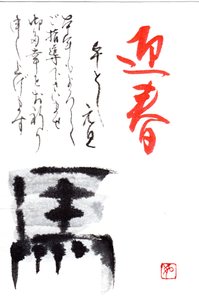 迎春
午とし 元旦
本年もよろしく
ご指導下さいませ
御多幸をお祈り
申し上げます
馬